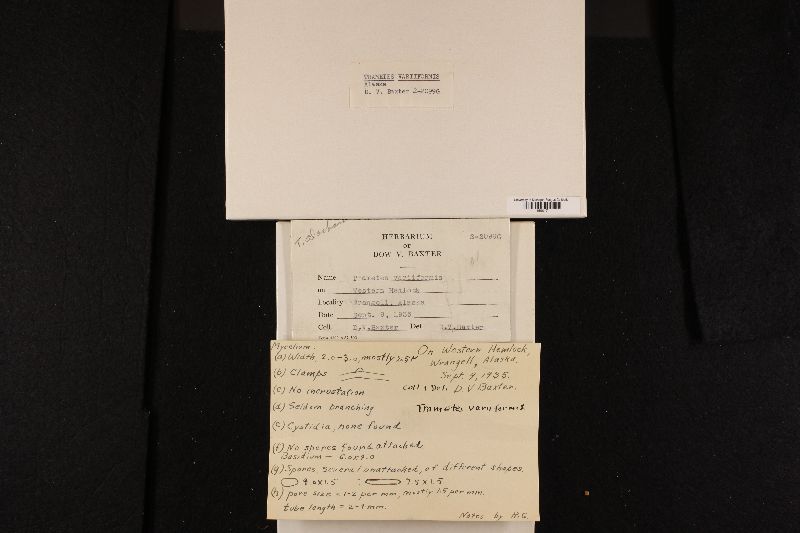 TRAMETES VARIIFORMIS
Alaska
D. V. Baxter 2-2099G
HERBARIUM
OF
DOW V. BAXTER
Name Trametes variiformis
on Western Hemlock
Locality Wrangell, Alaska
Date Sept. 9, 1935
Coll D.V.Baxter Det D.V.Baxter
Mycelium:
(a) Width, 2.0-3.0, mostly 2.5µ
(b) Clamps
(c) No incrustation
(d) Seldom branching
(e) Cystidia, none found
(f) No spores found attached
Basidium - 6.0x9.0
(g) Spores, several unattached, of different shapes.
9.0x1.5 7.5x1.5
(h) pore size = 1-2 per mm, mostly 1.5 per mm.
tube length = 2-1 mm.
On Western Hemlock,
Wrangell, Alaska.
Sept. 9, 1935.
Coll & Det. D.V Baxter.
Trametes variiformis
Notes by H.G.